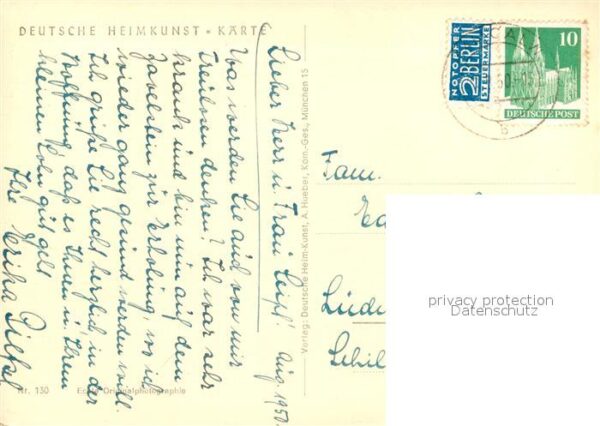 DEUTSCHE HEIMKUNST • KARTE
Aug. 1950
Lieber Herr u. Frau
Was werden Sie auch von mir
Treulosen denken? Ich war sehr
krank und bin nun auf dem
zur Erholung, wo ich
wieder ganz gesund werden soll.
Ich grüße Sie recht herzlich in der
Hoffnung, daß es Ihnen u. Ihrem
kleinen gut geht
Ihre Erika
Nr. 130
Echte Originalphotographie
Verlag: Deutsche Heim-Kunst, A. Hueber, Kom.-Ges., München 15
NOTOPFER
2 BERLIN
STEUERMARKE
10
DEUTSCHE POST
Fam.
Lüde
Schil
privacy protection
Datenschutz